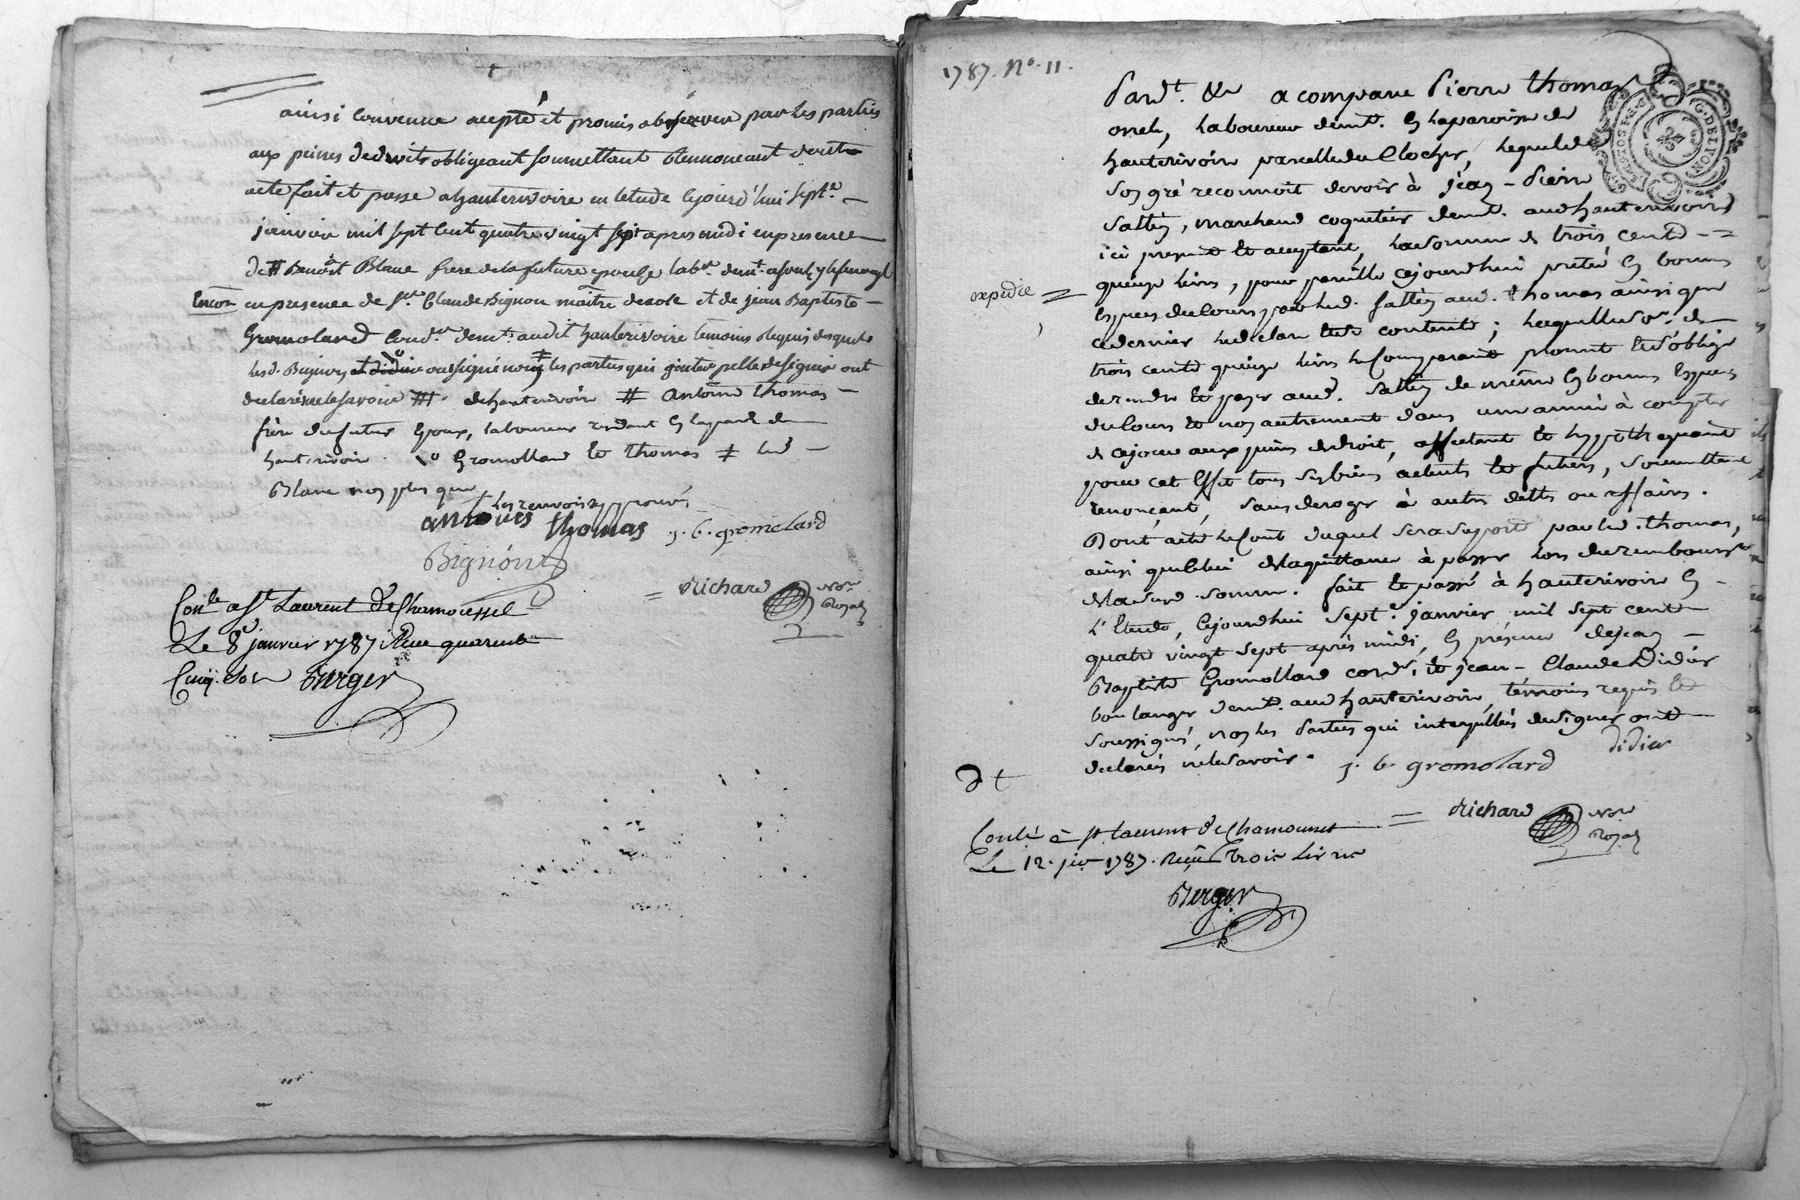 ainsi convenu accepté et promis observer par les parties
aux peines de droits obligeant soumettant renoncant dont
acte fait et passé a hauterivoire en letude cejourd'hui sept.e
janvier mil sept cent quatre vingt sept apres midi en presence
de # Benoît Blanc frere de la future epouse lab.r dem.t a
Encor en presence de s.r Claude Bignon maître decole et de jean Baptiste
Gromoland Cord.er dem.t audit hauterivoire temoins requis desquels
les d. Bignon et didier ou signé non ‡ les parties qui de signer ont
declaré ne le savoir #. de hauterivoir # Antoine thomas
frère du futur Epoux, laboureur
hauterivoir . Gromollard et thomas ‡ led
Blanc non plus que
les renvois approuvés
antoines thomas j. b. gromelard
Bignon
= Richard No.re Royal
Con.lé a St Laurent De Chamousset
Le 8 janvier 1787 Reçu quarente
Cinq sols Berger
1787. No. 11.
Pard.t &a a comparu Pierre thomas
laboureur dem.t. En la paroisse de
hauterivoir parcelle du Clocher, lequel de
son gré reconnoit devoir à jean-Pierre
marchand coquetier dem.t. aud hauterivoir
ici present et acceptant, la somme de trois cents
quinze livres, pour pareille cejourdhui prêtée En bonnes
expediée =
Especes du cours par led. aud. thomas ainsi que
ce dernier le declare et sen contente ; laquelle so.e de
trois cents quinze livres le Comparant promet et s'oblige
de rendre et payer aud. de même En bonnes Especes
du cours et non autrement dans une année à compter
de cejour aux peines de droit, affectant et hypothequant
pour cet Effet tous ses biens actuels et futurs, soumettant
renonçant, sans deroger à autres dettes ou affaires.
Dont acte le Cout duquel sera suporté par led. thomas,
ainsi que Celui de la quittance à passer lors du remboursem.t
de la susd. somme. fait et passé à hauterivoir En
l'Etude, cejourdhui sept.e janvier mil sept cent
quatre vingt sept après midi, En présence de jean
Baptiste Gromollard cord.r, et jean-Claude Didier
boulanger dem.t. aud hauterivoir, témoins requis et
soussignés, non les Parties qui interpellées de signer ont
declarés ne le savoir. j. b. gromolard didier
D t
= Richard No.re Royal
Conlé à St laurent De Chamousset
Le 12. jer 1787. Reçu Trois Livres
Berger